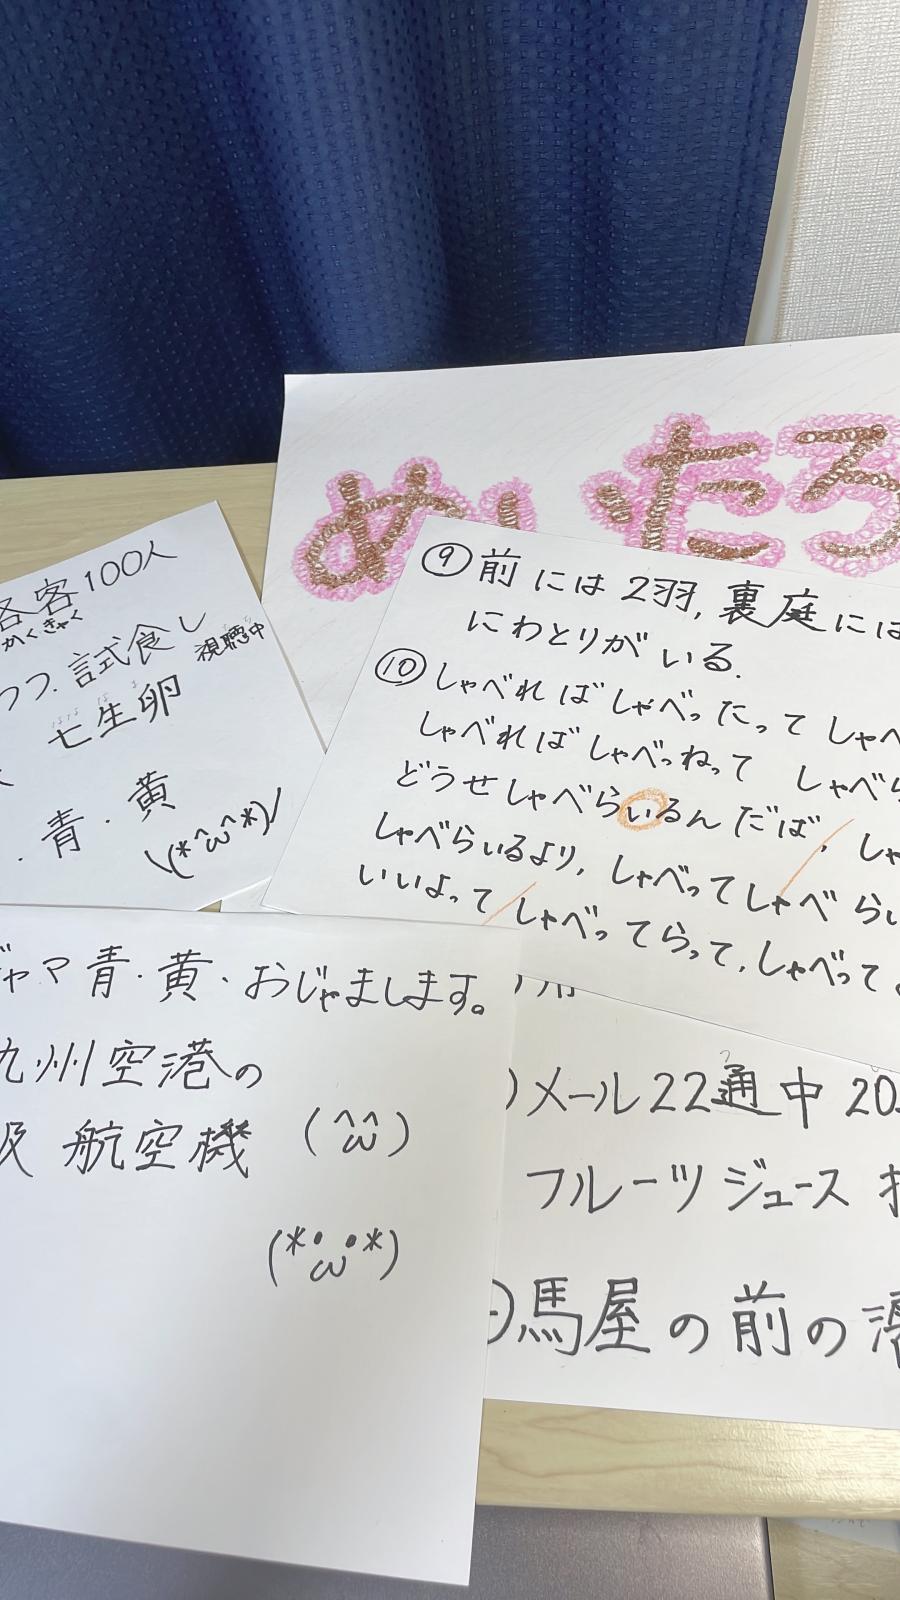 めいたろ
客100人
かくきゃく
つつ、試食し
視聴中
七生卵
・青・黄
\(*^ω^*)/
⑨前には2羽,裏庭には
にわとりがいる.
⑩しゃべればしゃべったって しゃべ
しゃべればしゃべっねって しゃべら
どうせしゃべらいるんだば,しゃ
しゃべらいるより,しゃべってしゃべらい
いいよって しゃべってらって,しゃべって
ジャマ青・黄・おじゃまします。
九州空港の
航空機 (^ω^)
(*・ω・*)
メール22通中20
フルーツジュース
馬屋の前の